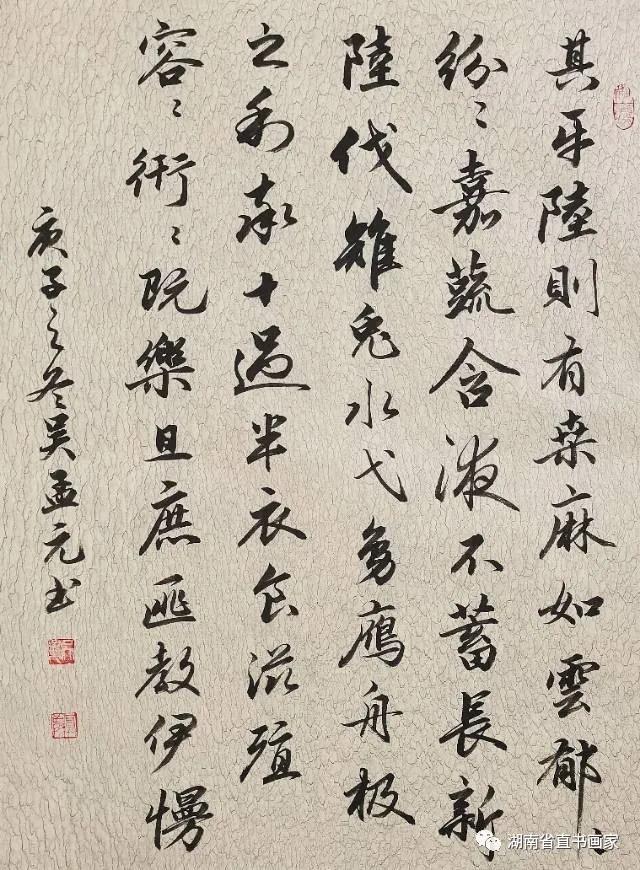 其平陸則有桑麻如雲郁〻
紛〻嘉蔬含液不蓄長新
陸伐雉兔水弋鳧鴈舟极
之利率十過半衣食滋殖
容〻衎〻既樂且庶匪教伊慢
庚子之冬吴孟元书
湖南省直书画家